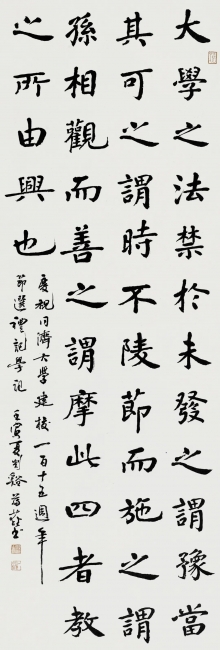 大學之法禁於未發之謂豫當
其可之謂時不陵節而施之謂
孫相觀而善之謂摩此四者教
之所由興也
慶祝同濟大學建校一百十五週年
節選禮記學記 壬寅夏